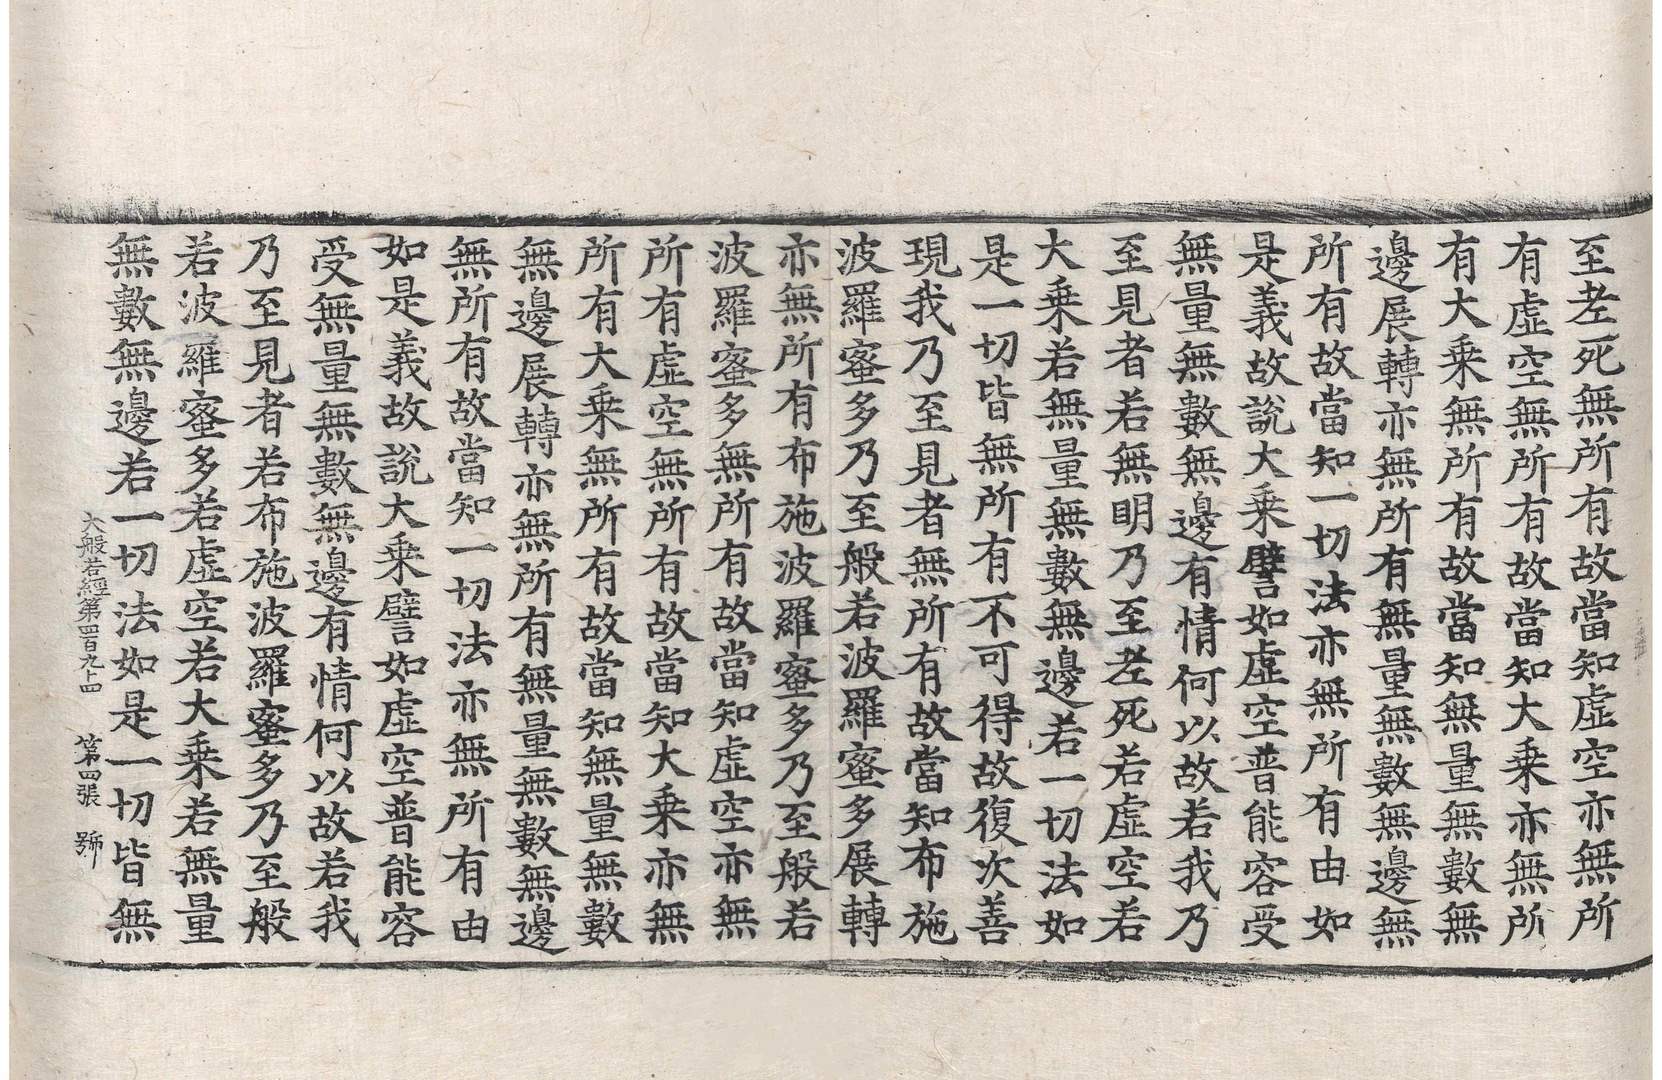 至老死無所有故當知虛空亦無所
有虛空無所有故當知大乘亦無所
有大乘無所有故當知無量無數無
邊展轉亦無所有無量無數無邊無
所有故當知一切法亦無所有由如
是義故說大乘譬如虛空普能容受
無量無數無邊有情何以故若我乃
至見者若無明乃至老死若虛空若
大乘若無量無數無邊若一切法如
是一切皆無所有不可得故復次善
現我乃至見者無所有故當知布施
波羅蜜多乃至般若波羅蜜多展轉
亦無所有布施波羅蜜多乃至般若
波羅蜜多無所有故當知虛空亦無
所有虛空無所有故當知大乘亦無
所有大乘無所有故當知無量無數
無邊展轉亦無所有無量無數無邊
無所有故當知一切法亦無所有由
如是義故說大乘譬如虛空普能容
受無量無數無邊有情何以故若我
乃至見者若布施波羅蜜多乃至般
若波羅蜜多若虛空若大乘若無量
無數無邊若一切法如是一切皆無
大般若經第四百九十四 第四張 號